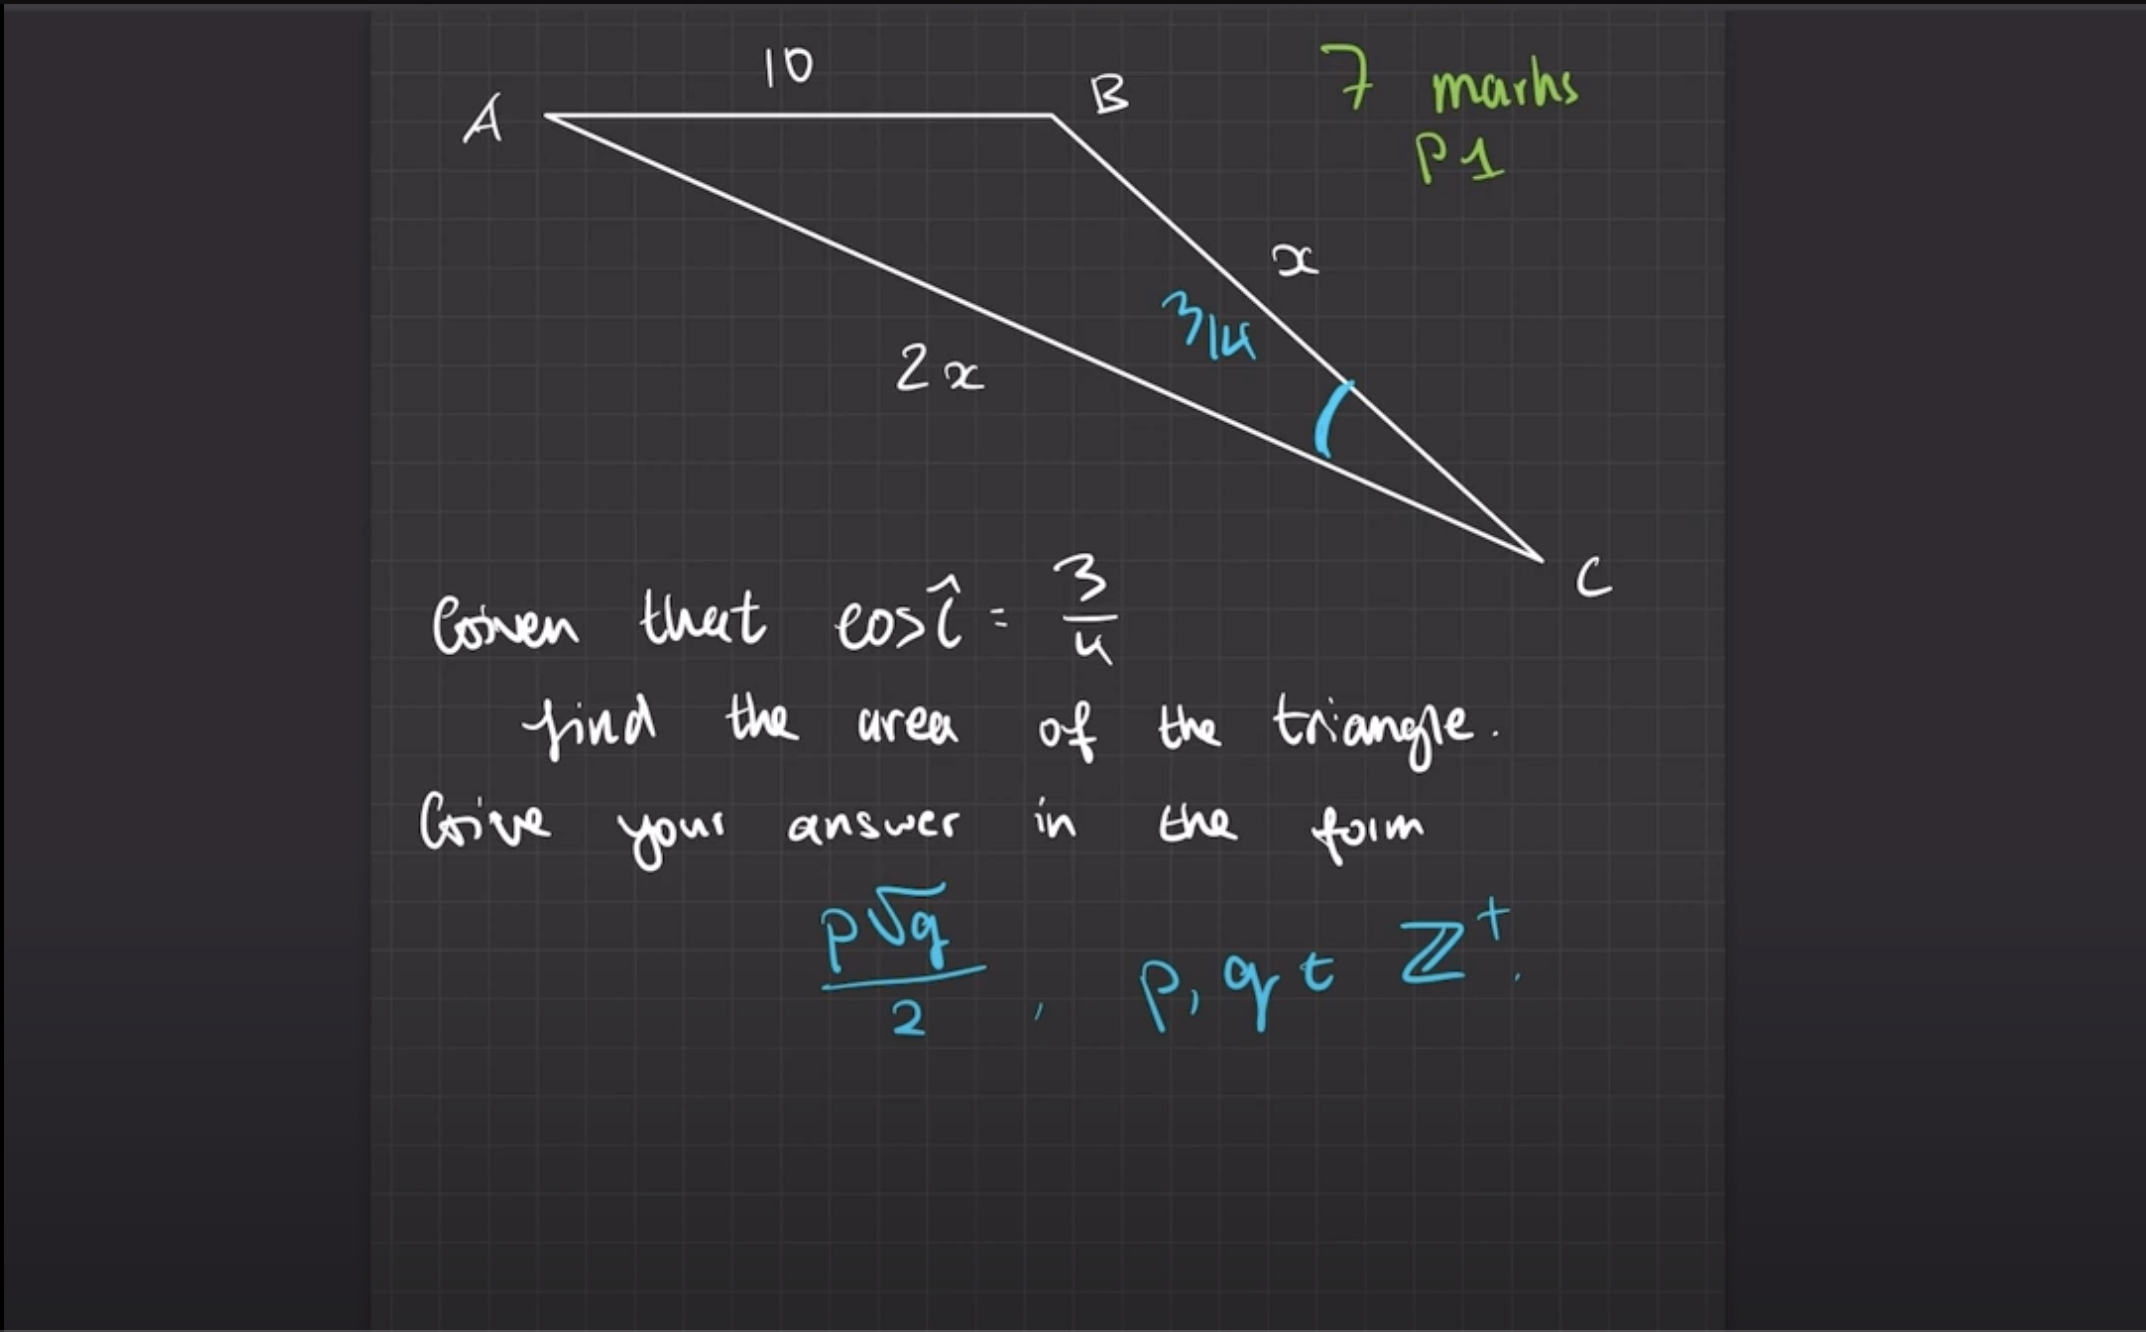 10
A
B
7 marks
P1
x
3/4
2x
C
Given that cos Ĉ = 3/4
find the area of the triangle.
Give your answer in the form
p√q/2 , p, q ∈ ℤ⁺.